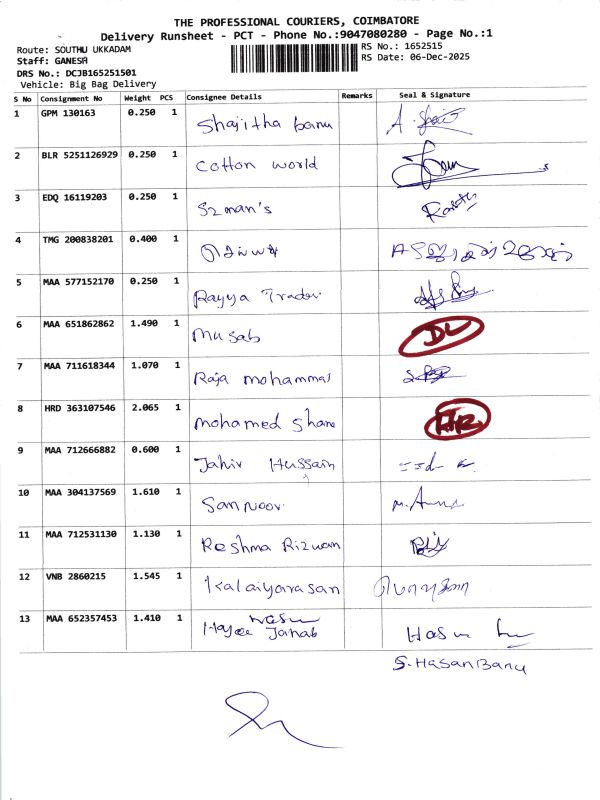 THE PROFESSIONAL COURIERS, COIMBATORE
Delivery Runsheet - PCT - Phone No.:9047080280 - Page No.:1
Route: SOUTHU UKKADAM
RS No.: 1652515
Staff: GANESA
RS Date: 06-Dec-2025
DRS No.: DCJB165251501
Vehicle: Big Bag Delivery
S No Consignment No Weight PCS Consignee Details Remarks Seal & Signature
1 GPM 130163 0.250 1 Shajitha banu A.
2 BLR 5251126929 0.250 1 Cotton world
3 EDQ 16119203 0.250 1 Szman's
4 TMG 200838201 0.400 1
5 MAA 577152170 0.250 1 Rayya Trader
6 MAA 651862862 1.490 1 Musab DL
7 MAA 711618344 1.070 1 Raja mohammad
8 HRD 363107546 2.065 1 mohamed Shane
9 MAA 712666882 0.600 1 Jahir Hussain
10 MAA 304137569 1.610 1 Sannoor
11 MAA 712531130 1.130 1 Reshma Rizwan
12 VNB 2860215 1.545 1 Kalaiyarasan
13 MAA 652357453 1.410 1 Janab Hasu
S.HasanBanu